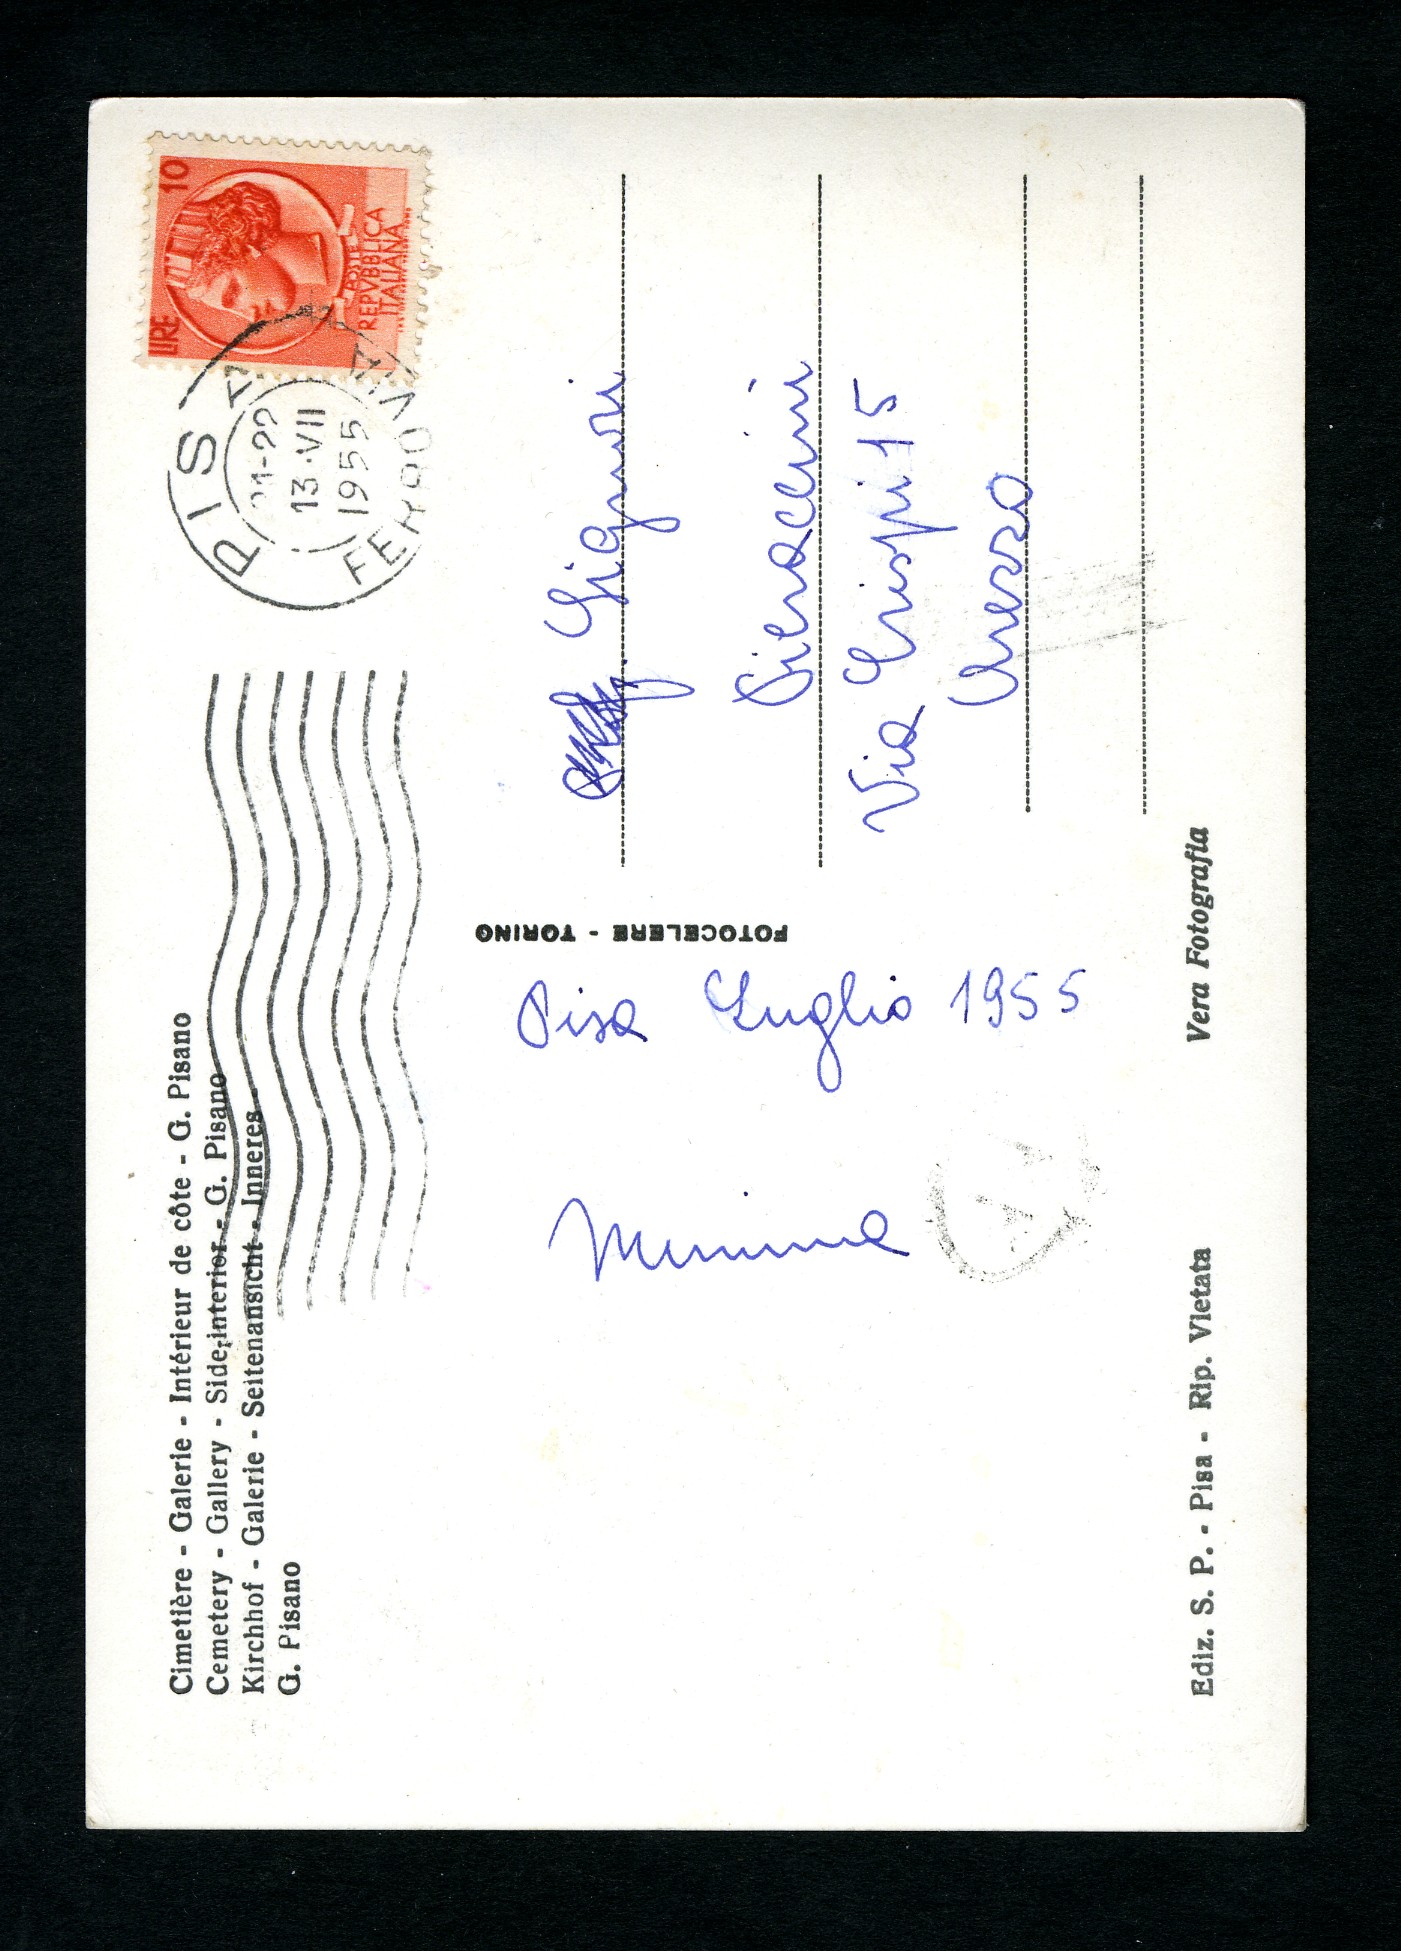 Cimetière - Galerie - Intérieur de côte - G. Pisano
Cemetery - Gallery - Side-interior - G. Pisano
Kirchhof - Galerie - Seitenansicht - Inneres -
G. Pisano
LIRE 10
POSTE
REPVBBLICA
ITALIANA
PISA
FERROVIA
21-22
13·VII
1955
FOTOCELERE - TORINO
Gignori
Pieraccini
Via Crispi 15
Arezzo
Pisa Luglio 1955
Mimma
Ediz. S. P. - Pisa - Rip. Vietata
Vera Fotografia